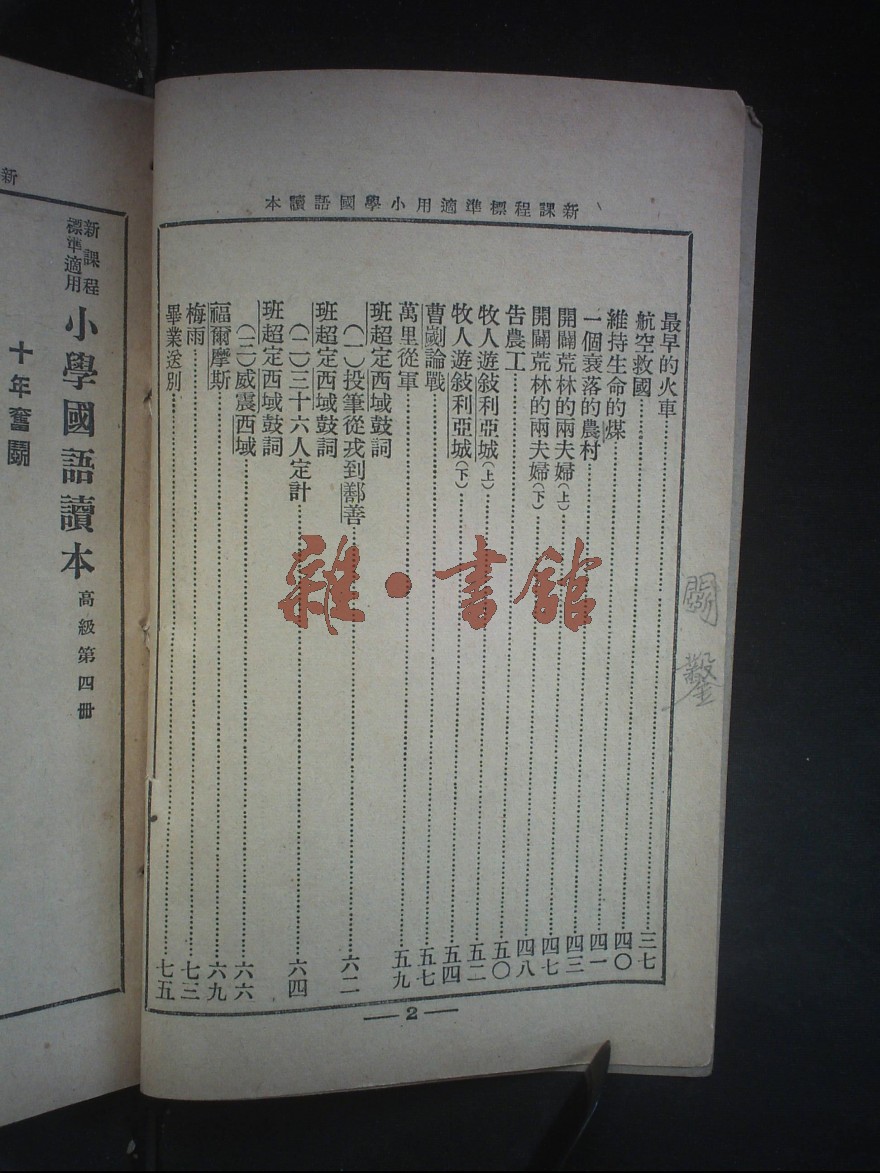 新課程標準適用小學國語讀本
最早的火車……三七
航空救國……四〇
維持生命的煤……四一
一個衰落的農村……四三
開闢荒林的兩夫婦(上)……四七
開闢荒林的兩夫婦(下)……四八
告農工……五〇
牧人遊敍利亞城(上)……五二
牧人遊敍利亞城(下)……五四
曹劌論戰……五七
萬里從軍……五九
班超定西域鼓詞
(一)投筆從戎到鄯善……六二
班超定西域鼓詞
(二)三十六人定計……六四
班超定西域鼓詞
(三)威震西域……六六
福爾摩斯……六九
梅雨……七三
畢業送別……七五
— 2 —
鑿
雜·書館
新
新課程
標準適用
小學國語讀本 高級第四冊
十年奮鬭